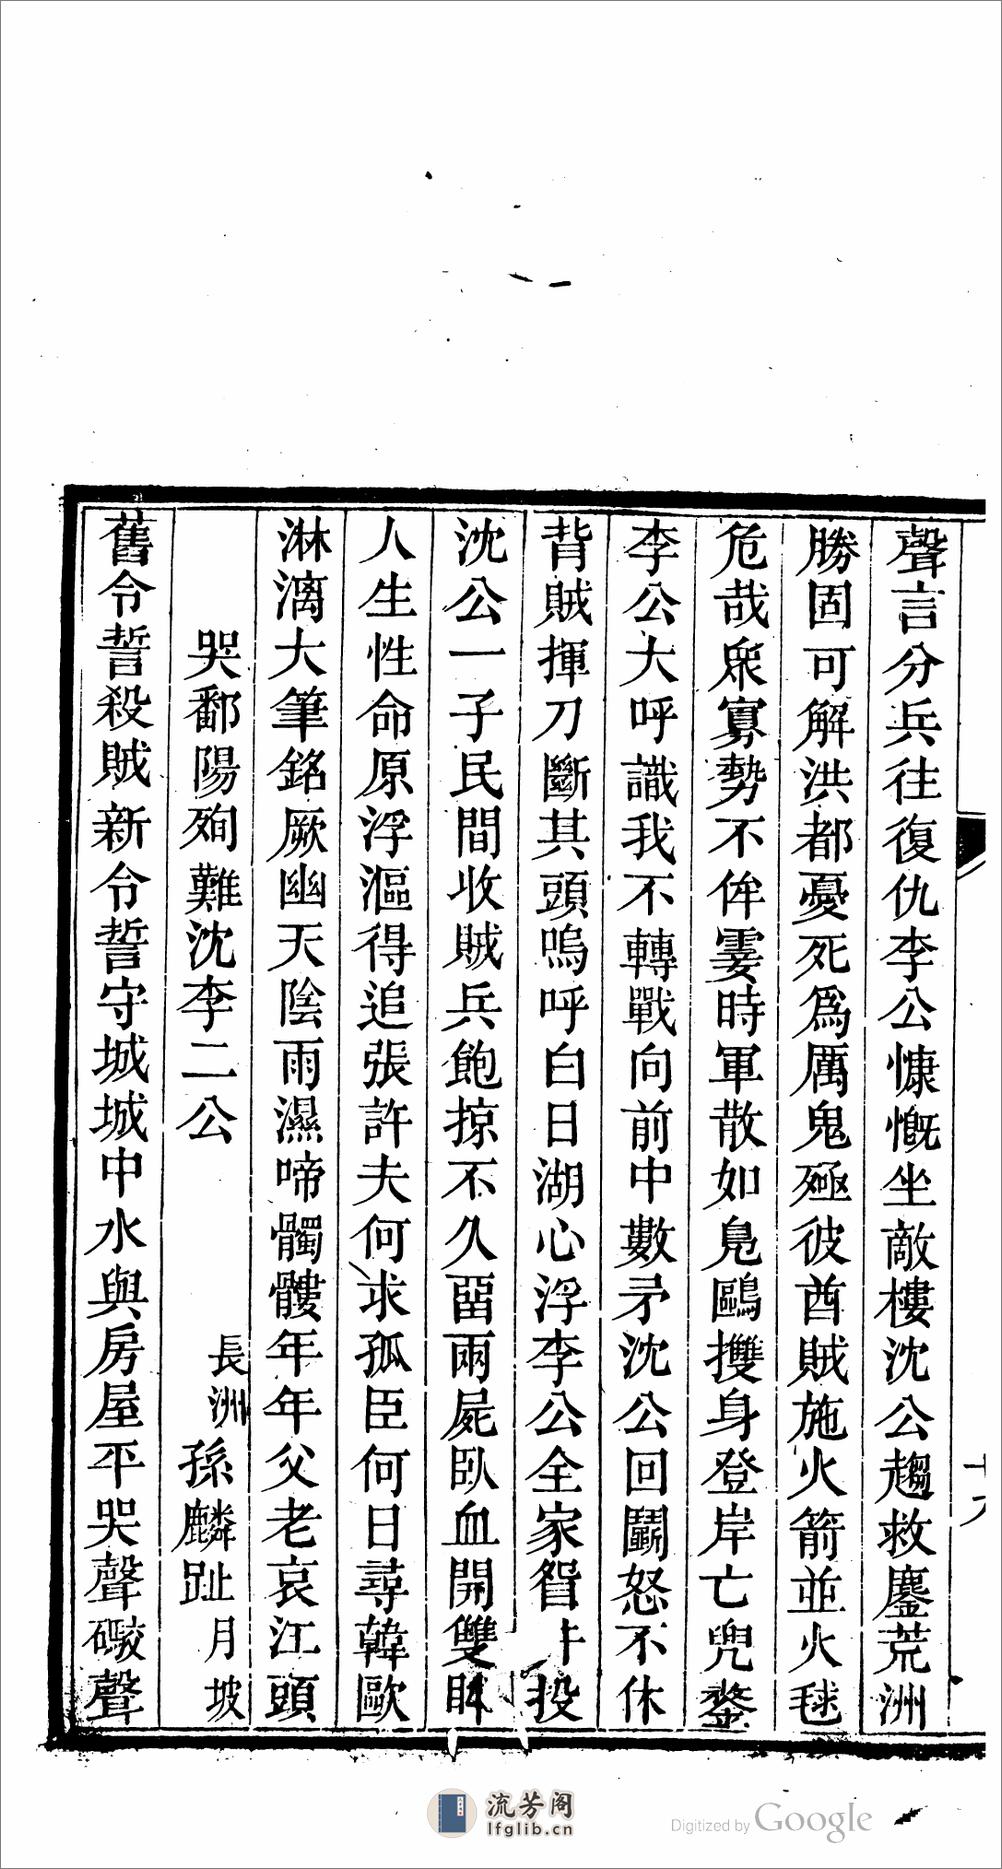 聲言分兵往復仇李公慷慨坐敵樓沈公趨救鏖荒洲
勝固可解洪都憂死爲厲鬼殛彼酋賊施火箭並火毬
危哉衆寡勢不侔霎時軍散如鳧鷗㩳身登岸亡兜鍪
李公大呼識我不轉戰向前中數矛沈公回鬭怒不休
背賊揮刀斷其頭嗚呼白日湖心浮李公全家眢井投
沈公一子民間收賊兵飽掠不久留兩屍臥血開雙眸
人生性命原浮漚得追張許夫何求孤臣何日尋韓歐
淋漓大筆銘厥幽天陰雨濕啼髑髏年年父老哀江頭
哭鄱陽殉難沈李二公
長洲孫麟趾月坡
舊令誓殺賊新令誓守城城中水與房屋平哭聲礮聲
流芳阁
lfglib.cn
Digitized by Google